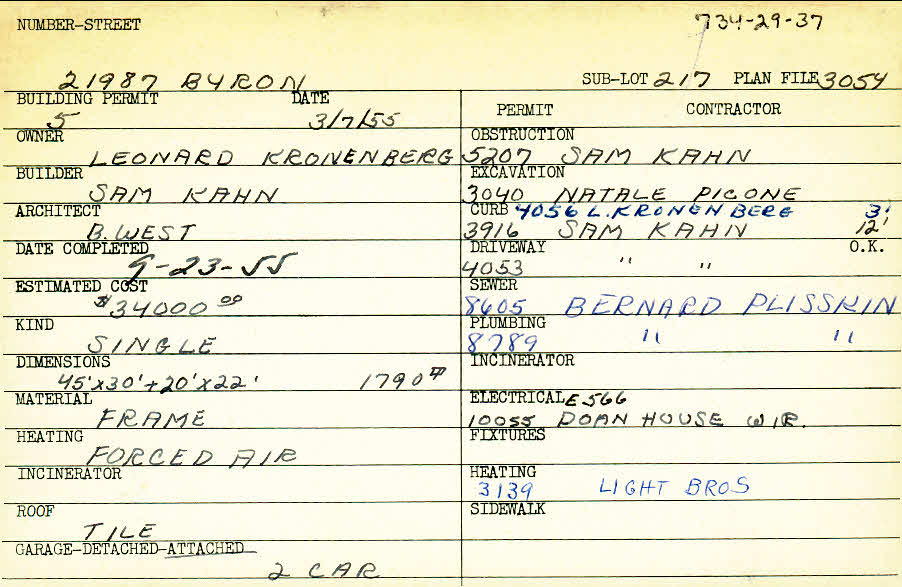 NUMBER-STREET 734-29-37
21987 BYRON SUB-LOT 217 PLAN FILE 3054
BUILDING PERMIT DATE
5 3/7/55
OWNER
LEONARD KRONENBERG
BUILDER
SAM KAHN
ARCHITECT
B. WEST
DATE COMPLETED
9-23-55
ESTIMATED COST
$34000 00
KIND
SINGLE
DIMENSIONS
45'x30'+20'x22' 1790
MATERIAL
FRAME
HEATING
FORCED AIR
INCINERATOR
ROOF
TILE
GARAGE-DETACHED-ATTACHED
2 CAR
PERMIT CONTRACTOR
OBSTRUCTION
5207 SAM KAHN
EXCAVATION
3040 NATALE PICONE
CURB 4056 L. KRONENBERG 3'
3916 SAM KAHN 12'
DRIVEWAY O.K.
4053 " "
SEWER
8605 BERNARD PLISSKIN
PLUMBING
8789 " "
INCINERATOR
ELECTRICAL E566
10055 DOAN HOUSE WIR.
FIXTURES
HEATING
3139 LIGHT BROS
SIDEWALK